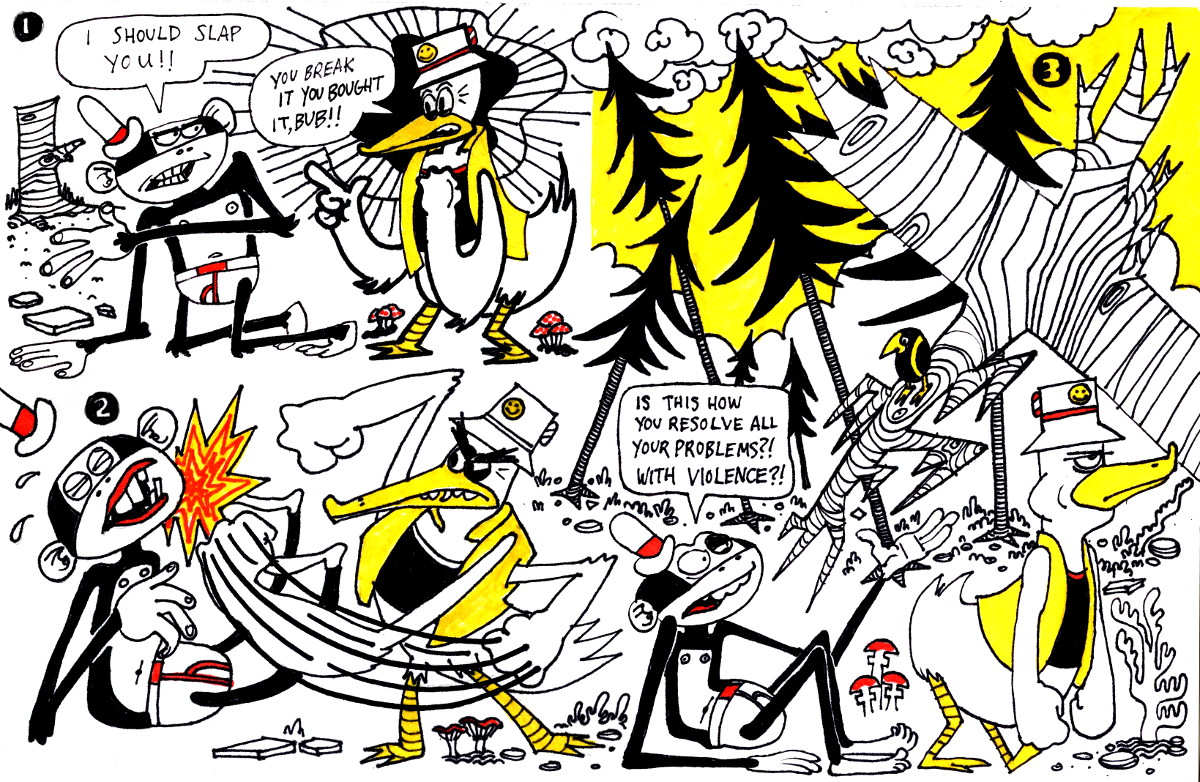 1
I SHOULD SLAP
YOU!!
YOU BREAK
IT YOU BOUGHT
IT, BUB!!
2
3
IS THIS HOW
YOU RESOLVE ALL
YOUR PROBLEMS?!
WITH VIOLENCE?!